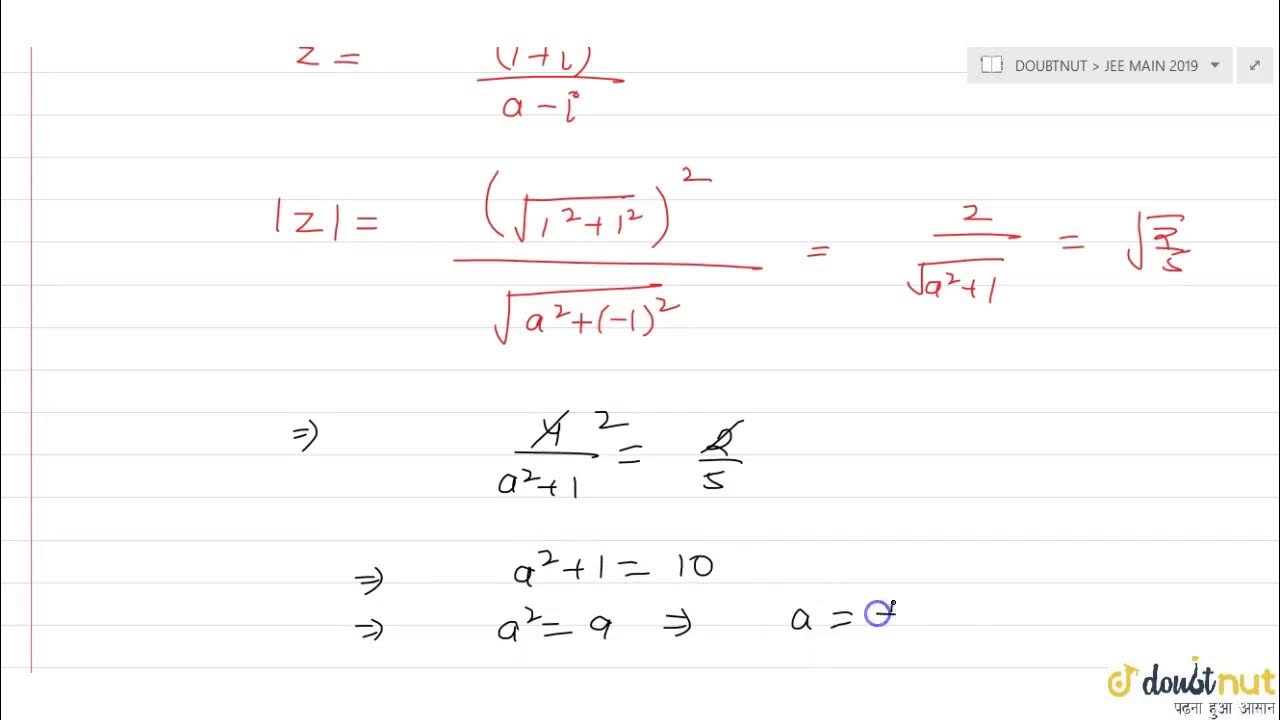 DOUBTNUT > JEE MAIN 2019
z = (1+i) / a-i
|z| = (√1²+1²)² / √a²+(-1)² = 2 / √a²+1 = √2/5
⇒ 4 2 / a²+1 = 2 / 5
⇒ a²+1 = 10
⇒ a² = 9 ⇒ a =
doubtnut
पढ़ना हुआ आसान